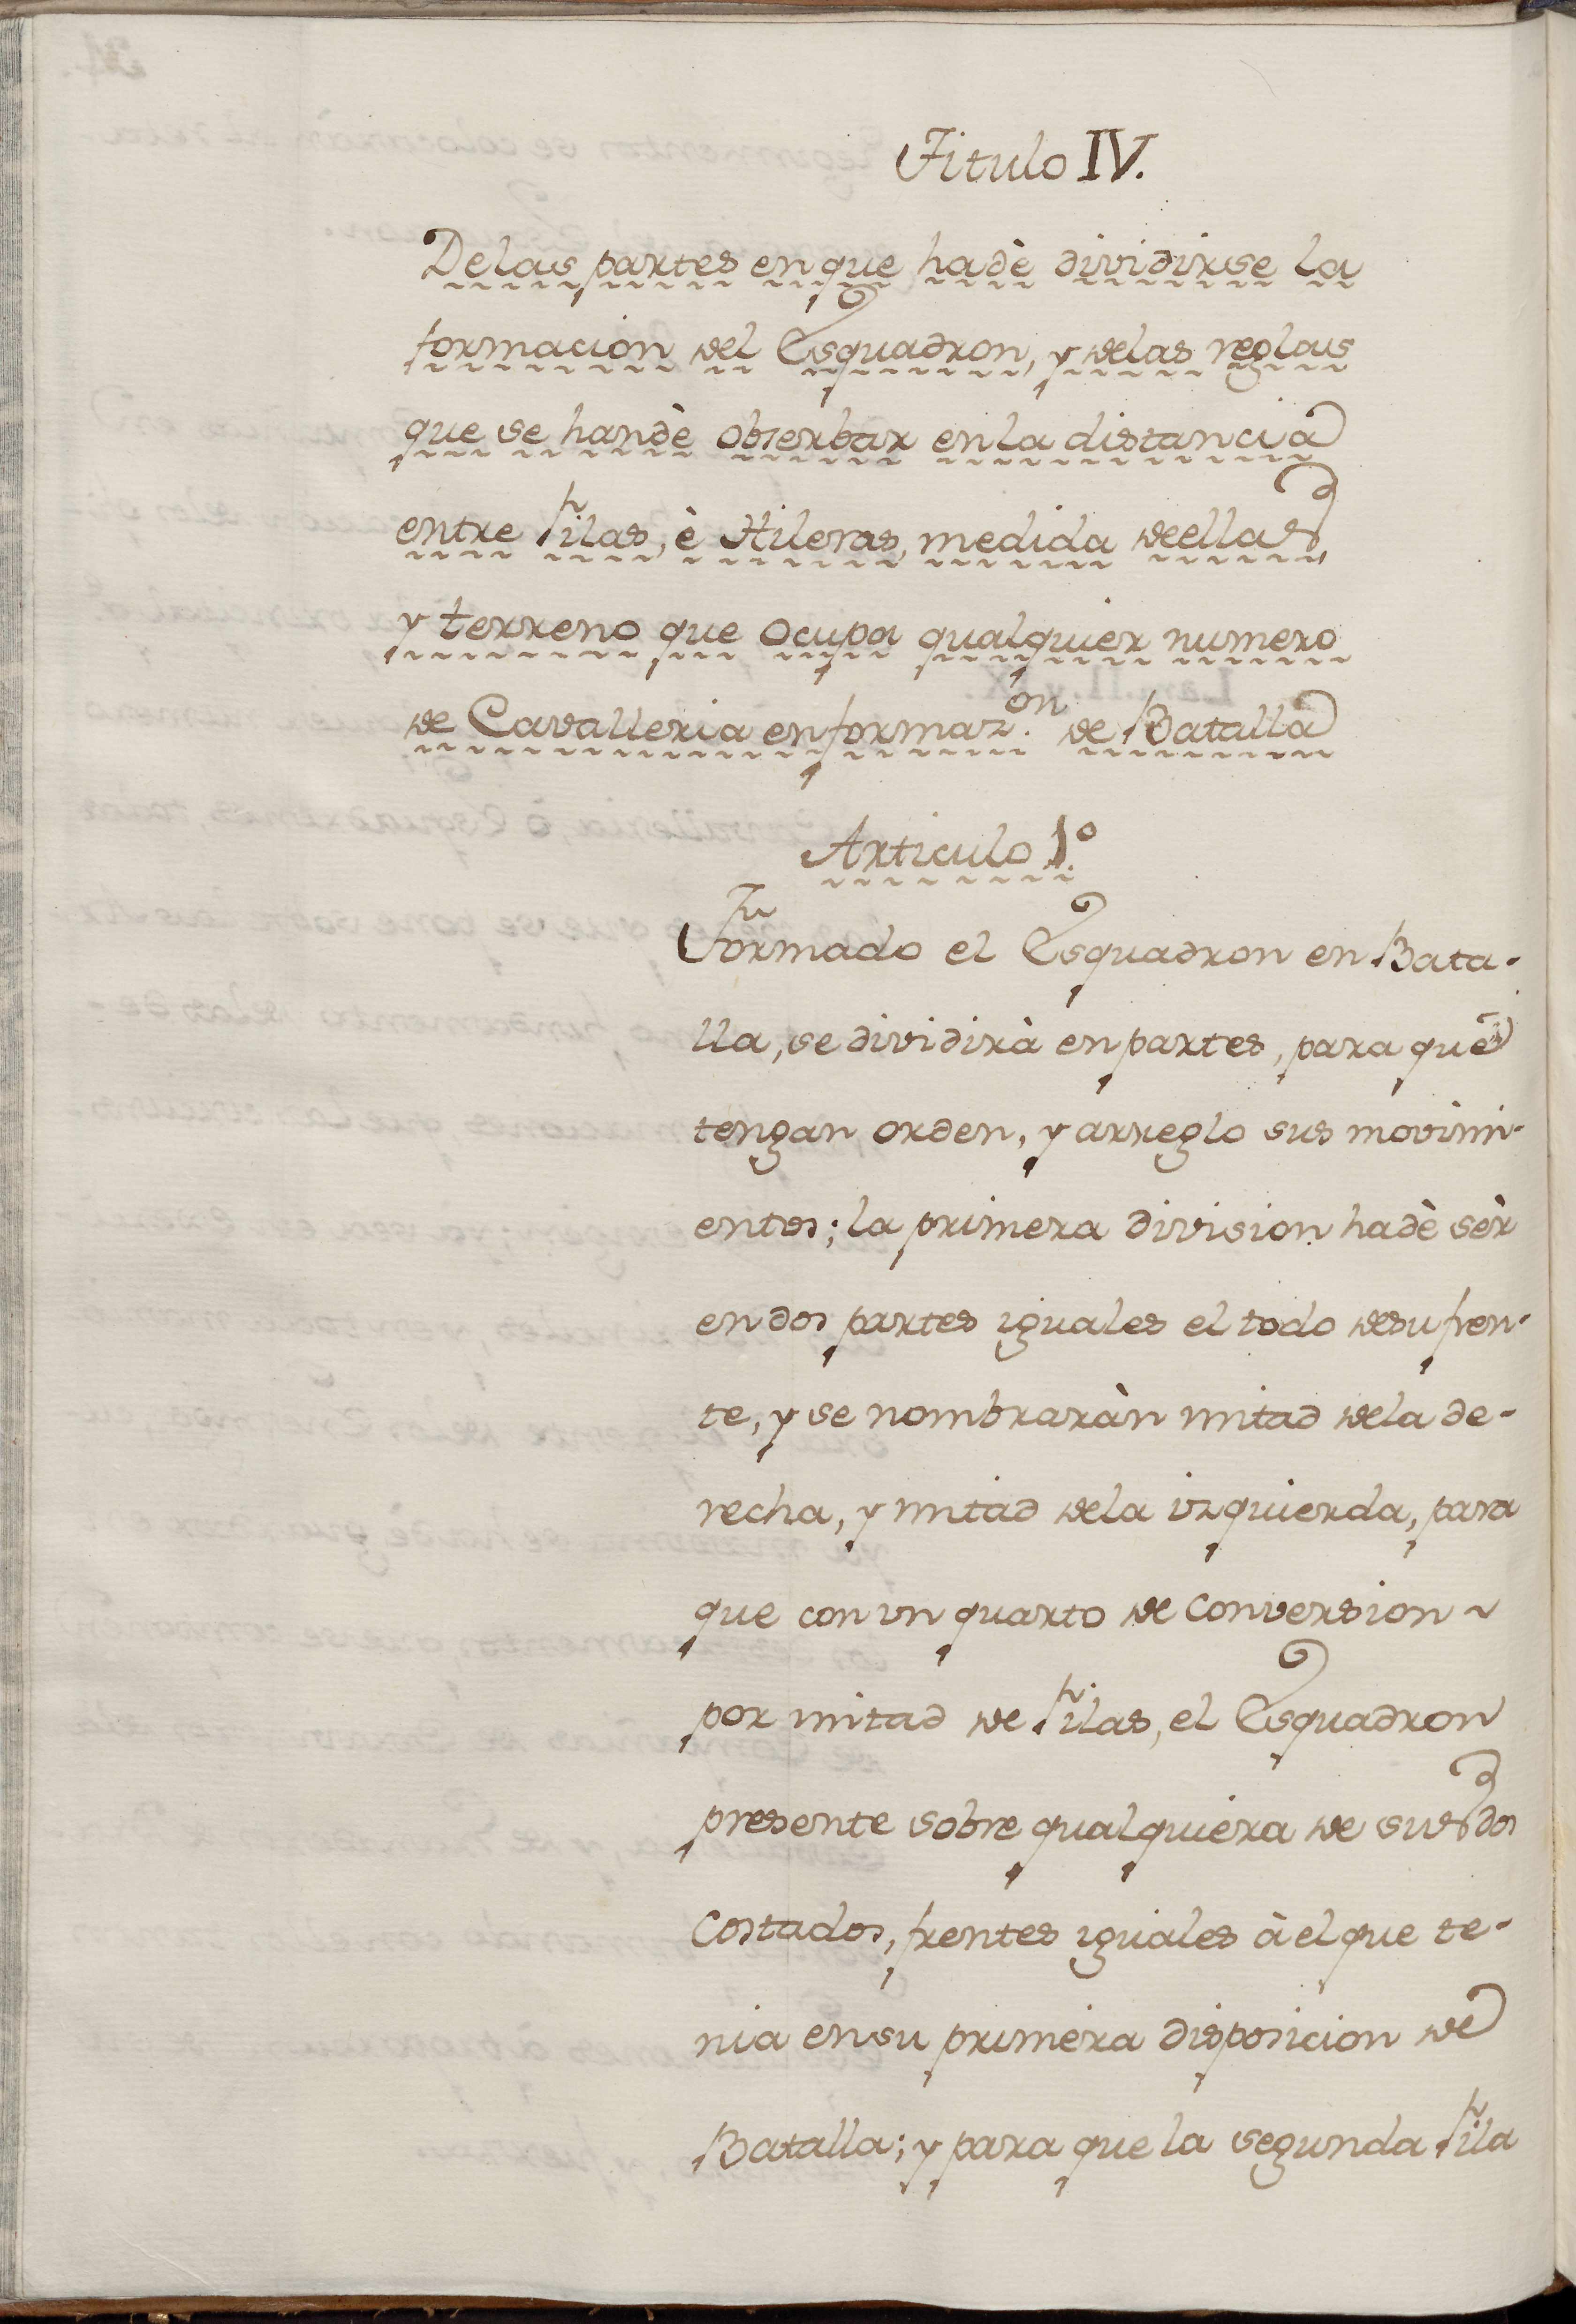 Titulo IV.
De las partes en que ha dè dividirse la
formacion del Esquadron, y de las reglas
que se han dè obserbar en la distancia
entre filas, è Hileras, medida de ellas,
y terreno que ocupa qualquier numero
de Cavalleria en formaz.on de Batalla
Articulo 1.º
Formado el Esquadron en Bata-
lla, se dividirà en partes, para que
tengan orden, y arreglo sus movimi-
entos; la primera division ha dè sèr
en dos partes iguales el todo de su fren-
te, y se nombraràn mitad de la de-
recha, y mitad de la izquierda, para
que con un quarto de conversion ~
por mitad de filas, el Esquadron
presente sobre qualquiera de sus dos
Costados, frentes iguales à el que te-
nia en su primera disposicion de
Batalla; y para que la segunda fila